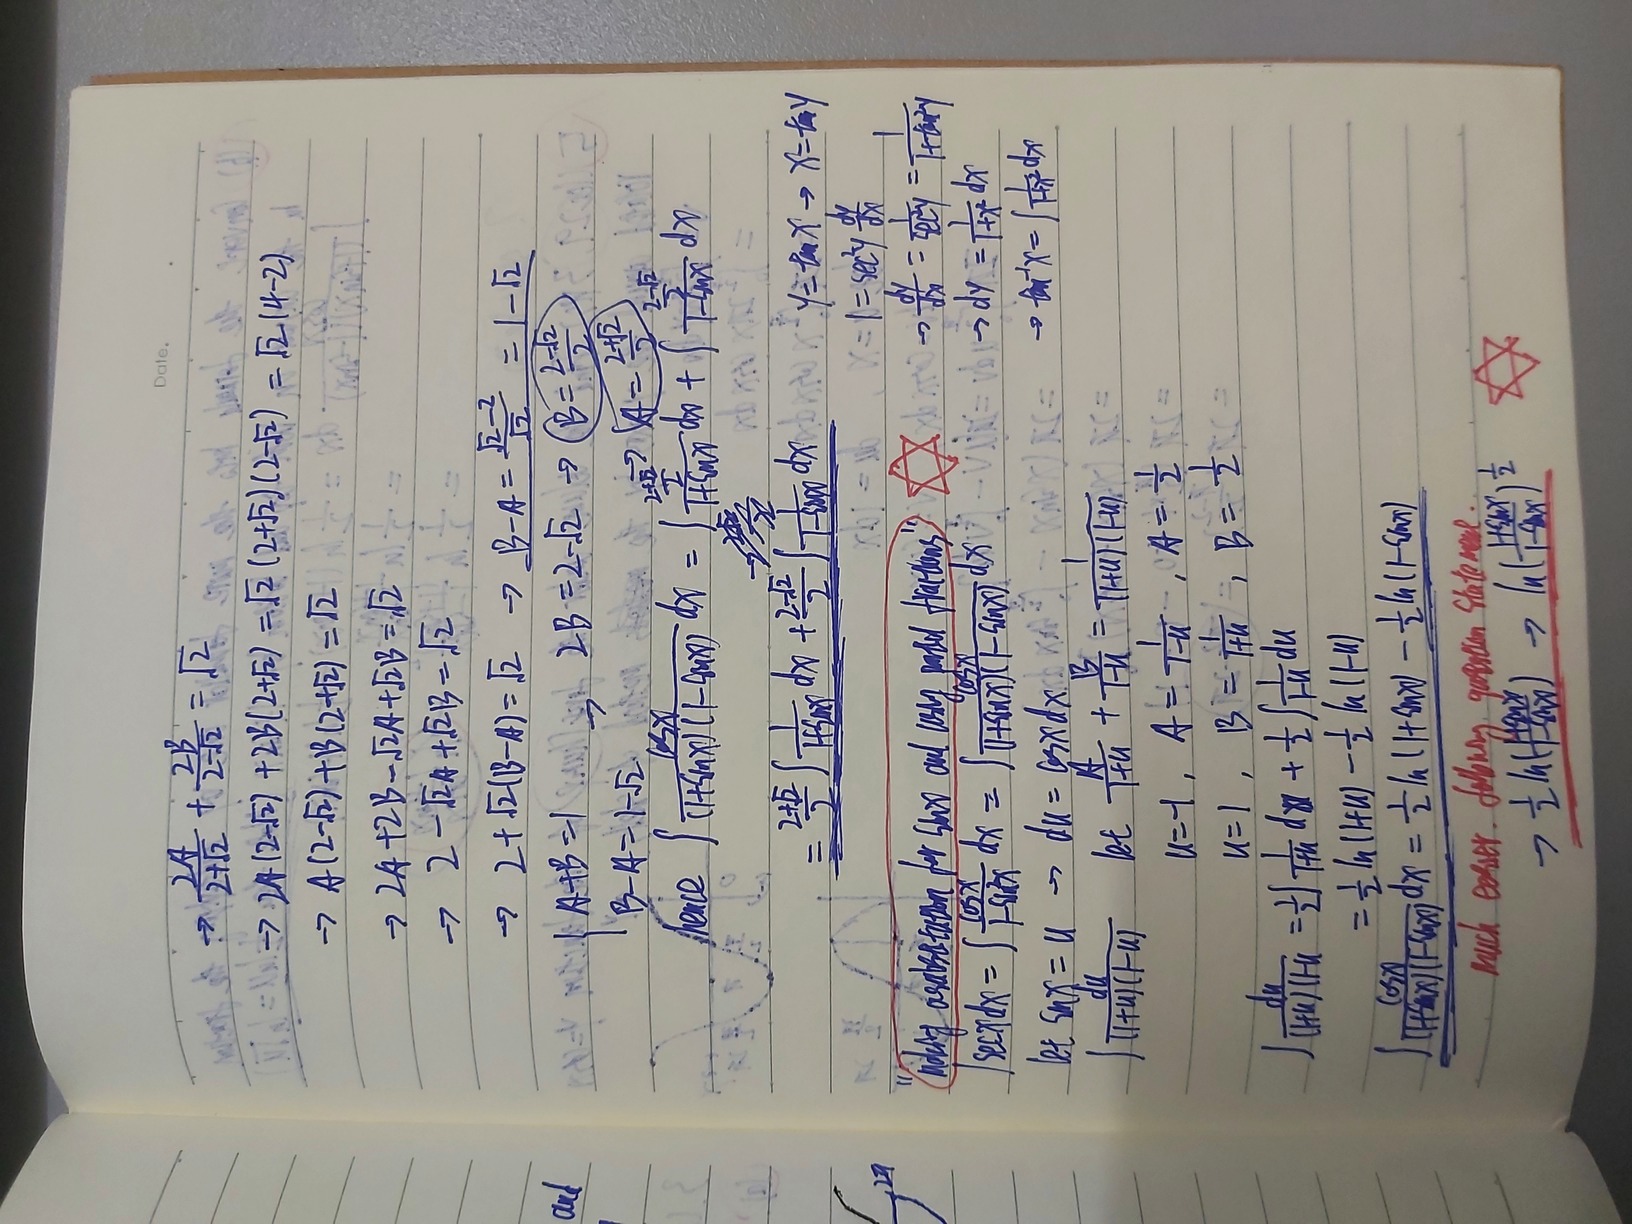 Date.
→ 2A/(2+√2) + 2B/(2-√2) = √2
→ 2A(2-√2) + 2B(2+√2) = √2(2+√2)(2-√2) = √2(4-2)
→ A(2-√2)+B(2+√2) = √2
→ 2A+2B-√2A+√2B = √2
→ 2 -√2A+√2B = √2
→ 2+√2(B-A) = √2 → B-A = (√2-2)/√2 = 1-√2
A+B=1 → 2B=2-√2 → B = (2-√2)/2
B-A=1-√2 → A = (2+√2)/2
hence ∫ cosx/((1+sinx)(1-sinx)) dx = ∫ ((2+√2)/2)/(1+sinx) dx + ∫ ((2-√2)/2)/(1-sinx) dx
= (2+√2)/2 ∫ 1/(1+sinx) dx + (2-√2)/2 ∫ 1/(1-sinx) dx
y=tan⁻¹x → x=tany
1=sec²y dy/dx
→ dy/dx = 1/sec²y = 1/(1+tan²y)
→ dy = 1/(1+x²) dx
→ tan⁻¹x = ∫ 1/(1+x²) dx
"making a substitution for sinx and using partial fractions"
∫secxdx = ∫ cosx/(1-sin²x) dx = ∫ cosx/((1+sinx)(1-sinx)) dx
let sinx = u → du = cosxdx
∫ du/((1+u)(1-u)) let A/(1+u) + B/(1-u) = 1/((1+u)(1-u))
u=-1, A = 1/(1-u), A = 1/2
u=1, B = 1/(1+u), B = 1/2
∫ du/((1+u)(1-u = 1/2 ∫ 1/(1+u) du + 1/2 ∫ 1/(1-u) du
= 1/2 ln(1+u) - 1/2 ln(1-u)
∫ cosx/((1+sinx)(1-sinx)) dx = 1/2 ln(1+sinx) - 1/2 ln(1-sinx)
much easier. following question statement.
→ 1/2 ln((1+sinx)/(1-sinx)) → ln((1+sinx)/(1-sinx))^(1/2)
and
2π